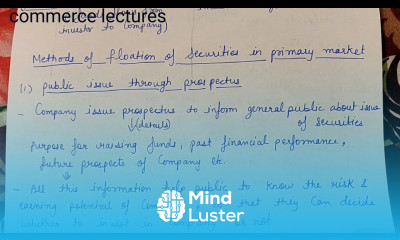 commerce lectures
Investor to Company)
Methods of floation of Securities in primary market
(1) public issue through prospectus
- Company issue prospectus to inform general public about issue
(details) of securities
purpose for raising funds, past financial performance,
future prospects of Company etc.
- All this information help public to know the risk &
earning potential of Com that they Can decide
whether to invest in Company or not
Mind
Luster